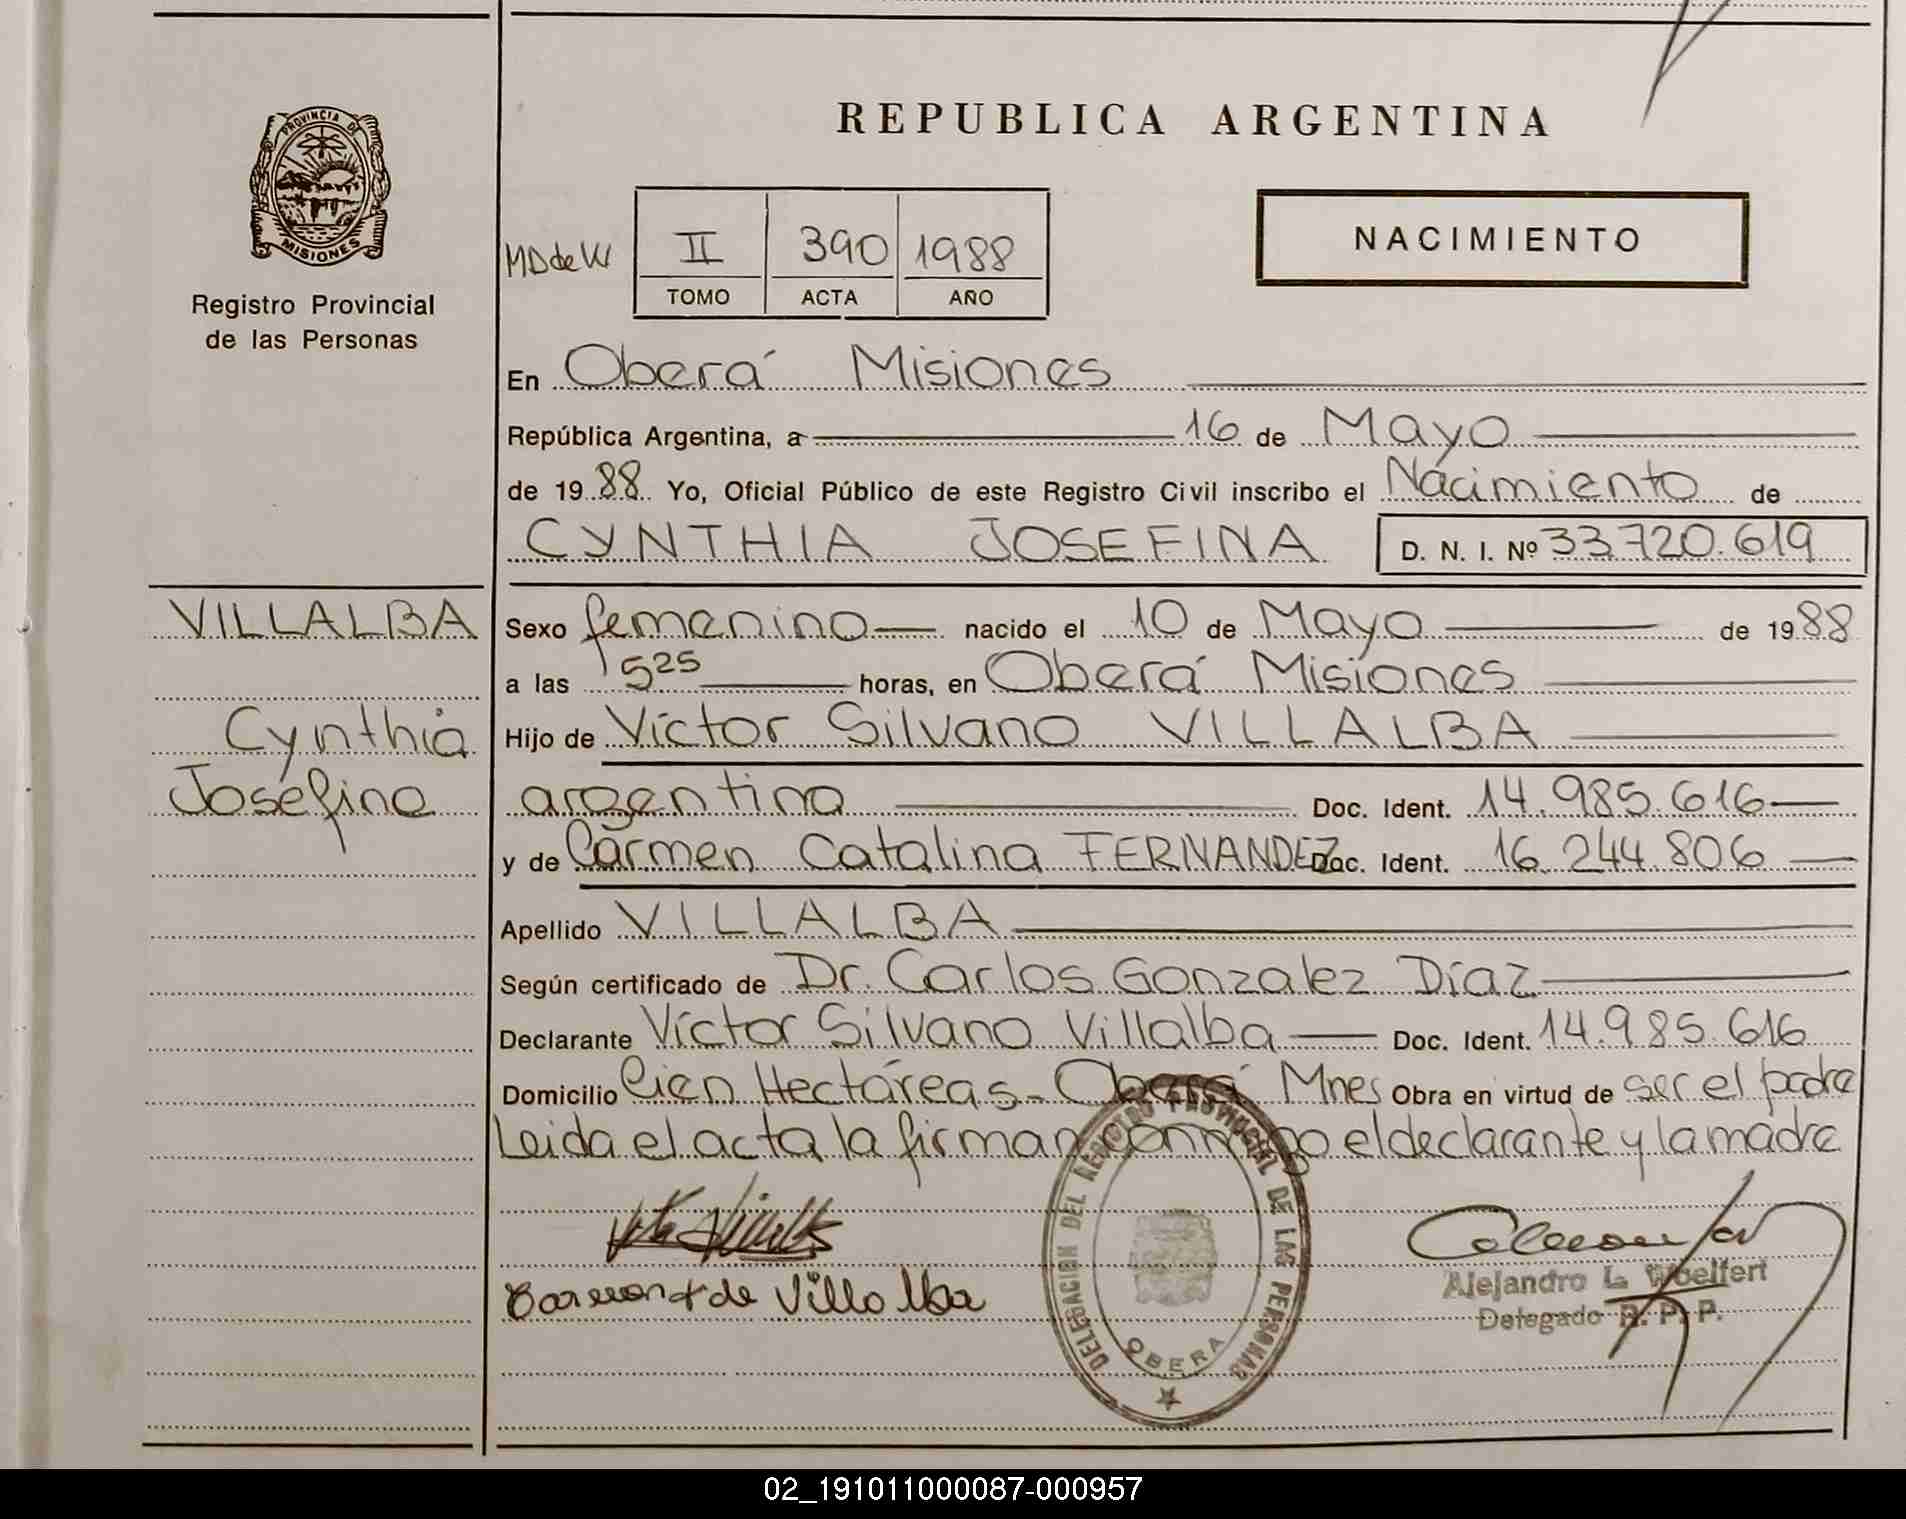 PROVINCIA DE
MISIONES
Registro Provincial
de las Personas
REPUBLICA ARGENTINA
MDdeW
II 390 1988
TOMO ACTA AÑO
NACIMIENTO
En Oberá Misiones
República Argentina, a 16 de Mayo
de 1988 Yo, Oficial Público de este Registro Civil inscribo el Nacimiento de
CYNTHIA JOSEFINA D. N. I. Nº 33.720.619
VILLALBA
Cynthia
Josefina
Sexo femenino nacido el 10 de Mayo de 1988
a las 5 25 horas, en Oberá Misiones
Hijo de Víctor Silvano VILLALBA
argentina Doc. Ident. 14.985.616
y de Carmen Catalina FERNANDEZ Doc. Ident. 16.244.806
Apellido VILLALBA
Según certificado de Dr. Carlos Gonzalez Díaz
Declarante Víctor Silvano Villalba Doc. Ident. 14.985.616
Domicilio Cien Hectáreas - Oberá Mnes Obra en virtud de ser el padre
Leida el acta la firman conmigo el declarante y la madre
de Villalba
DELEGACION DEL REGISTRO PROVINCIAL DE LAS PERSONAS
OBERA
Alejandro L. Woelfert
Delegado R. P. P.
02_191011000087-000957